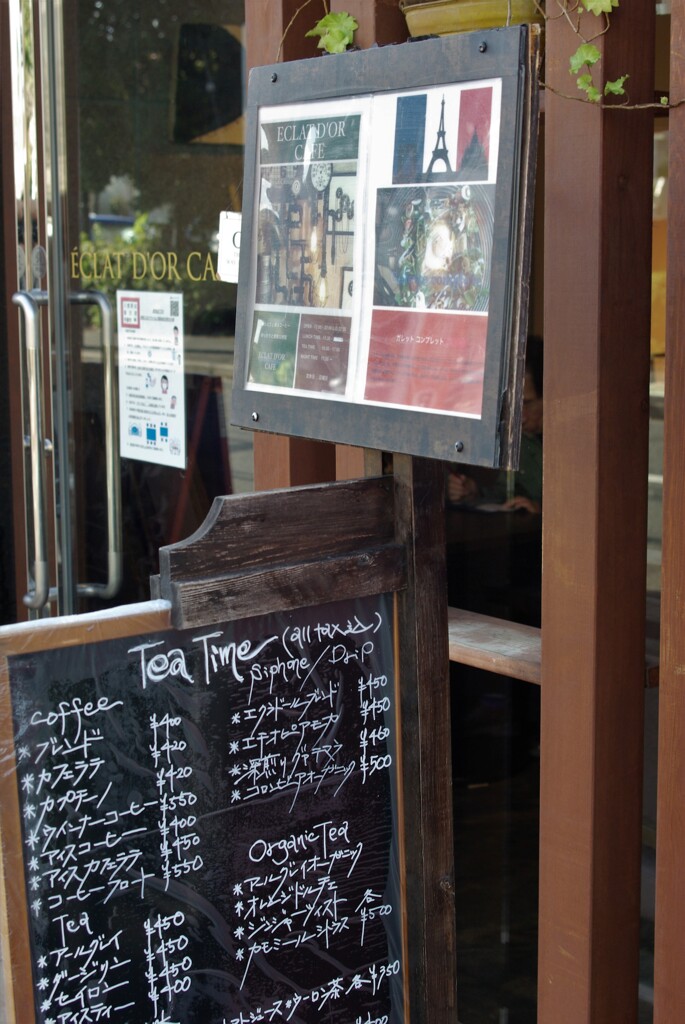 ÉCLAT D'OR CA
ECLAT D'OR
CAFE
ECLAT D'OR
CAFE
ガレット コンプレット
Tea Time (all tax込)
coffee
*ブレンド ¥400
*カフェラテ ¥420
*カプチーノ ¥420
*ウインナーコーヒー ¥550
*アイスコーヒー ¥400
*アイスカフェラテ ¥450
*コーヒーフロート ¥550
Tea
*アールグレイ ¥450
*ダージリン ¥450
*セイロン ¥450
*アイスティー ¥400
Siphone / Drip
*エクラドールブレンド ¥450
*エチオピアモカ ¥450
*深煎りグァテマラ ¥460
*コロンビアオーガニック ¥500
Organic Tea
*アールグレイオーガニック
*オレンジドルチェ
*ジンジャーツイスト
*カモミールシトラス 各¥500
トジュース*ウーロン茶 各¥350